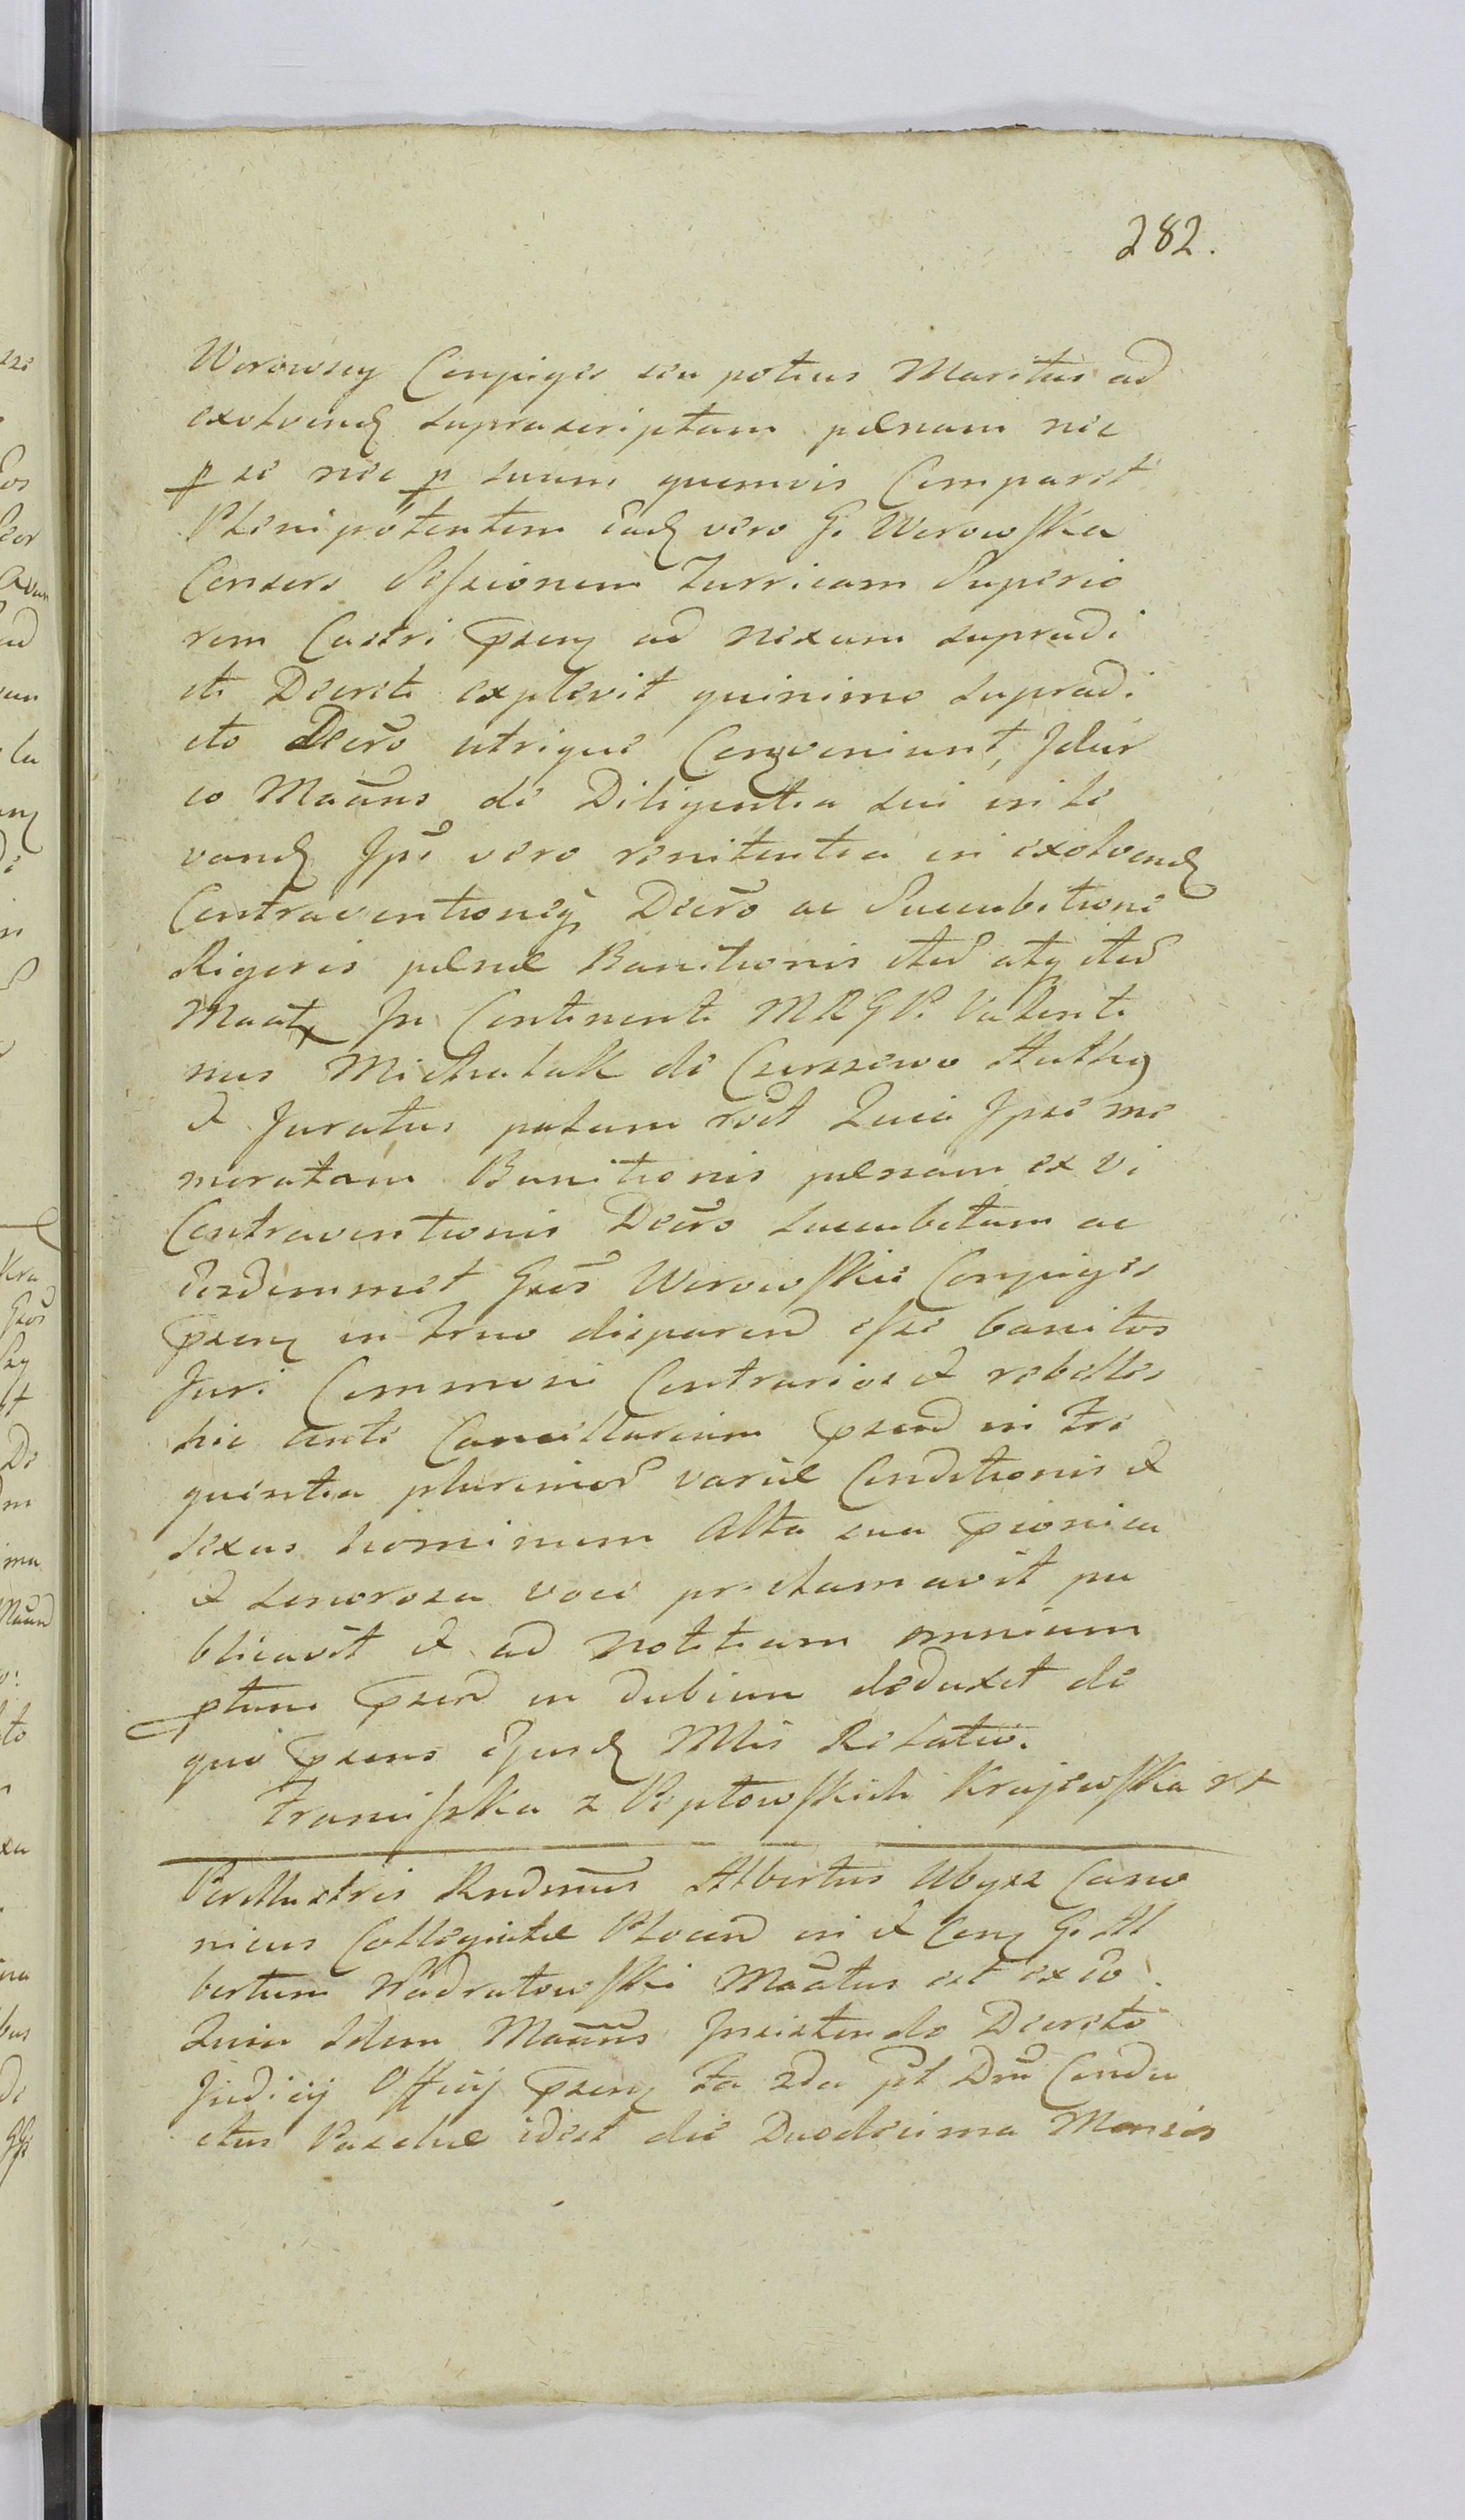 282.
Worowscy Conjuges seu potius Maritus ad
exolvend suprascriptam pænam nec
p se nec p suum quemvis Comparet
Plenipotentem ead vero G. Worowska
Consors Sessionem Turricam Superio
rem Castri psen ad nexum supradi
cti Decreti explevit quinimo supradi
cto Decro utrique Conveniunt, Idcir
co Maãns de Diligentia sui in le
vand Ipẽ vero renitentia in exolvend
Contraventione Decro ac Succubitione
Rigoris pænæ Banitionis sted atq sted
Maat In Continenti MRGP. Valenti
nus Michalak de Czerszewo Auth
et Juratus palam rõt Quia Ipse me
moratam Banitionis pænam ex vi
Contraventionis Decro succubitam ac
eosdemmet Gsos Worowskie Conjuges
psen in Trno disparend esse banitos
Juri Communi Contrarios et rebelles
hic ante Cancellariam psend in fre
quentia plurimor variæ Conditionis et
sexus hominum Alta sua
et sonorosa voce proclamavit pu
blicavit et ad notitiam omnium
ptam psend in dubium deduxit de
quo psens ejusd Mlis Relatio.
Franciszka z Peptowskich Krajewska
Perillustris Rndmus Albertus Ubysz Cano
nicus Collegiatæ Plocen in et Con G. Al
bertum Nadratowski Maatus est ex eo
Quia Idem Maãns Insistendo Decreto
Judicij Officij psen fa 2da pt Dm Condu
ctus Paschæ idest die Duodecima Mensis